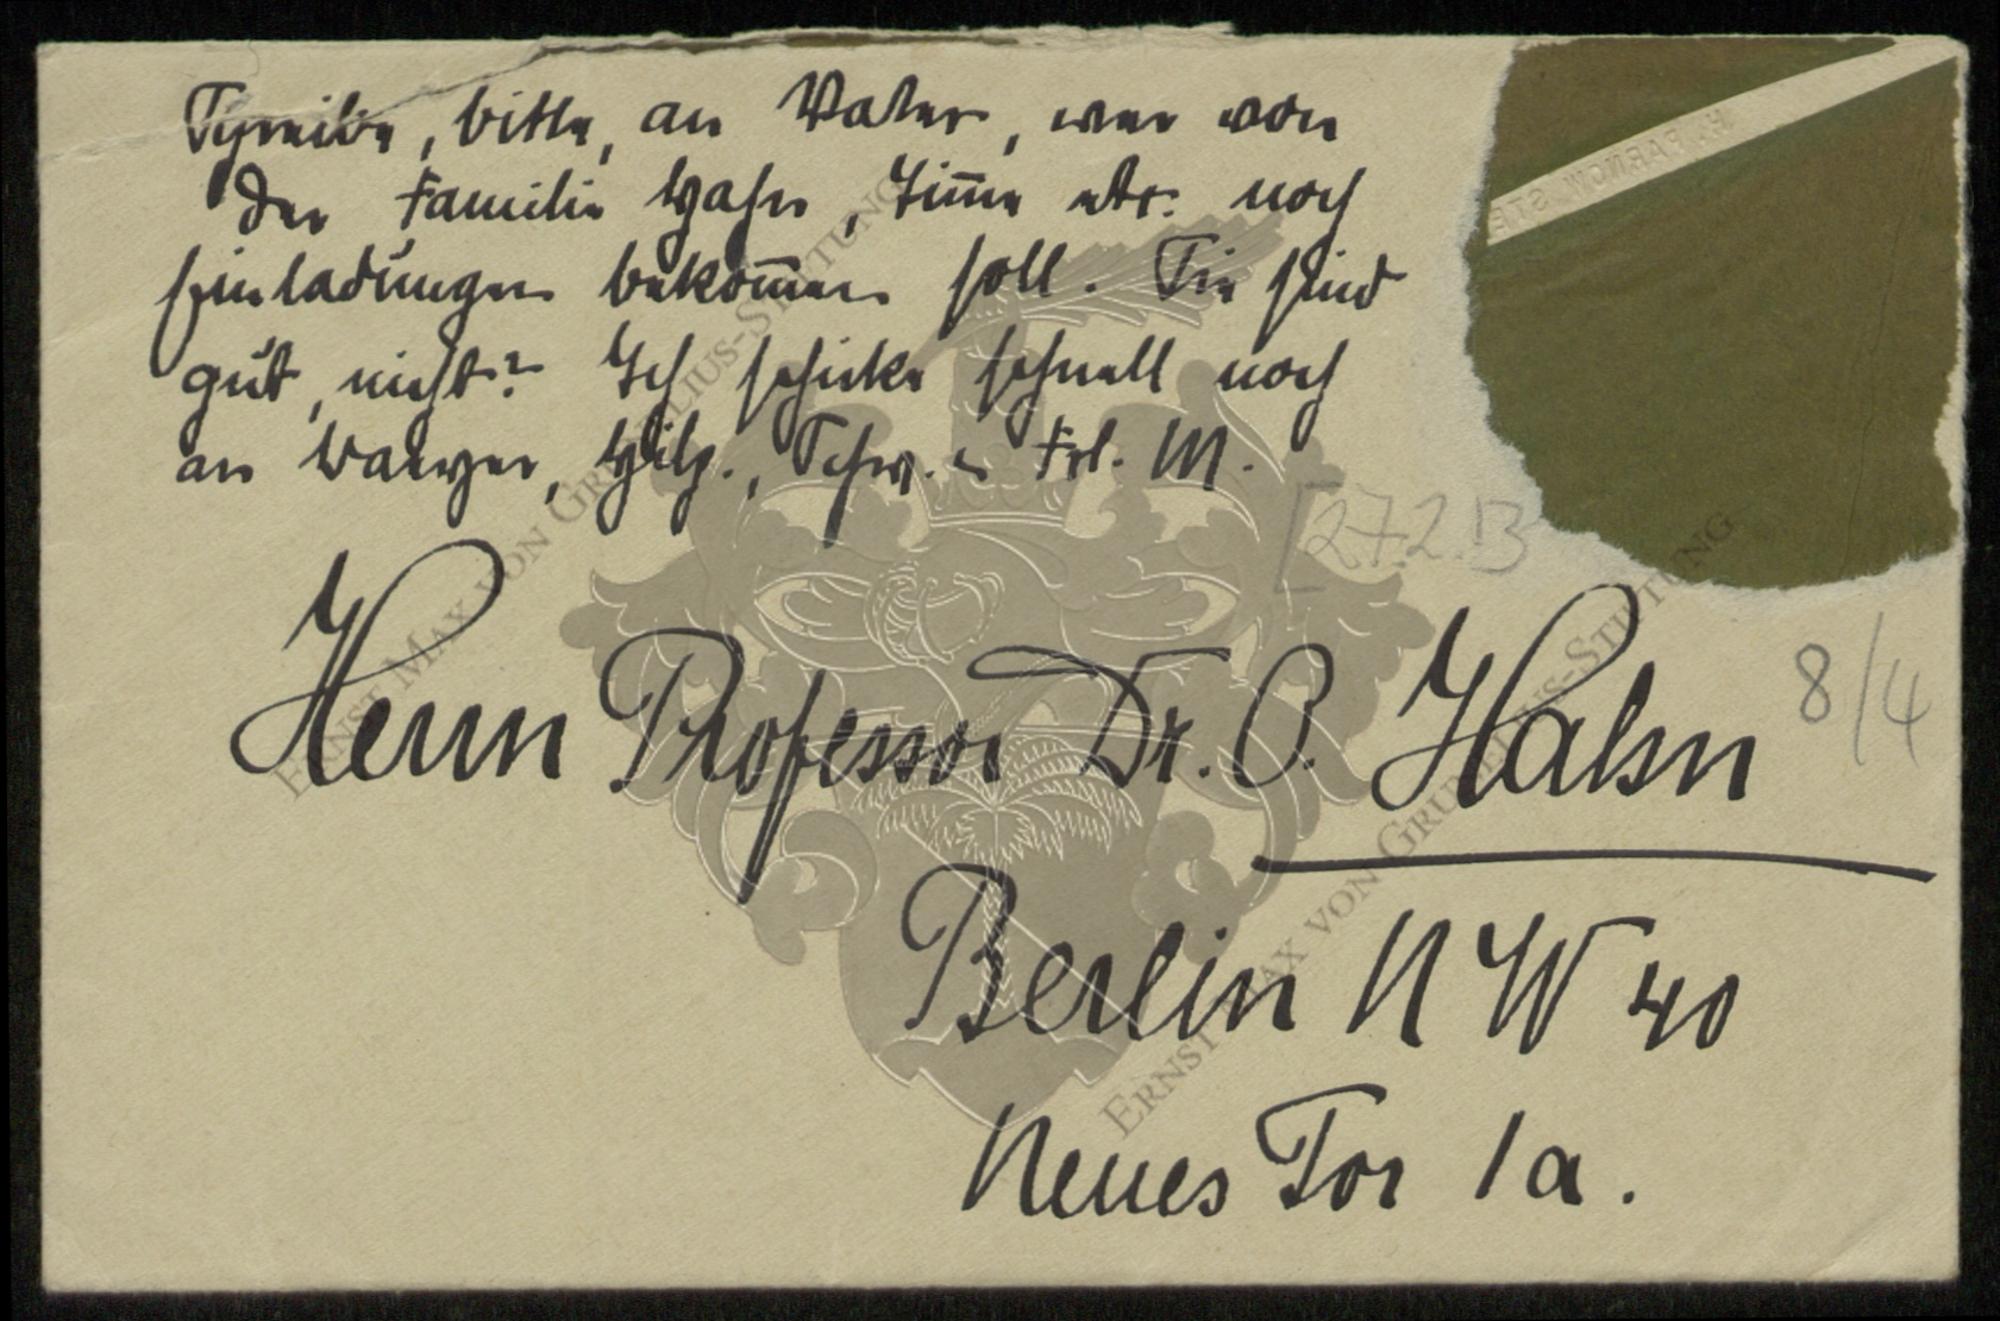 Schreibe, bitte, an Vater, wer von
der Familie Hahn, Timm etc. noch
Einladungen bekom̄en soll. Sie sind
gut, nicht? Ich schicke schnell noch
an Baeyer, Hilg., Schw. u Frl. M.
[27.2.13
Herrn Professor Dr. O. Hahn
8/4
Berlin NW 40
Neues Tor 1a.
H. PARNOW, STE
ERNST MAX VON GRUNELIUS-STIFTUNG
ERNST MAX VON GRUNELIUS-STIFTUNG